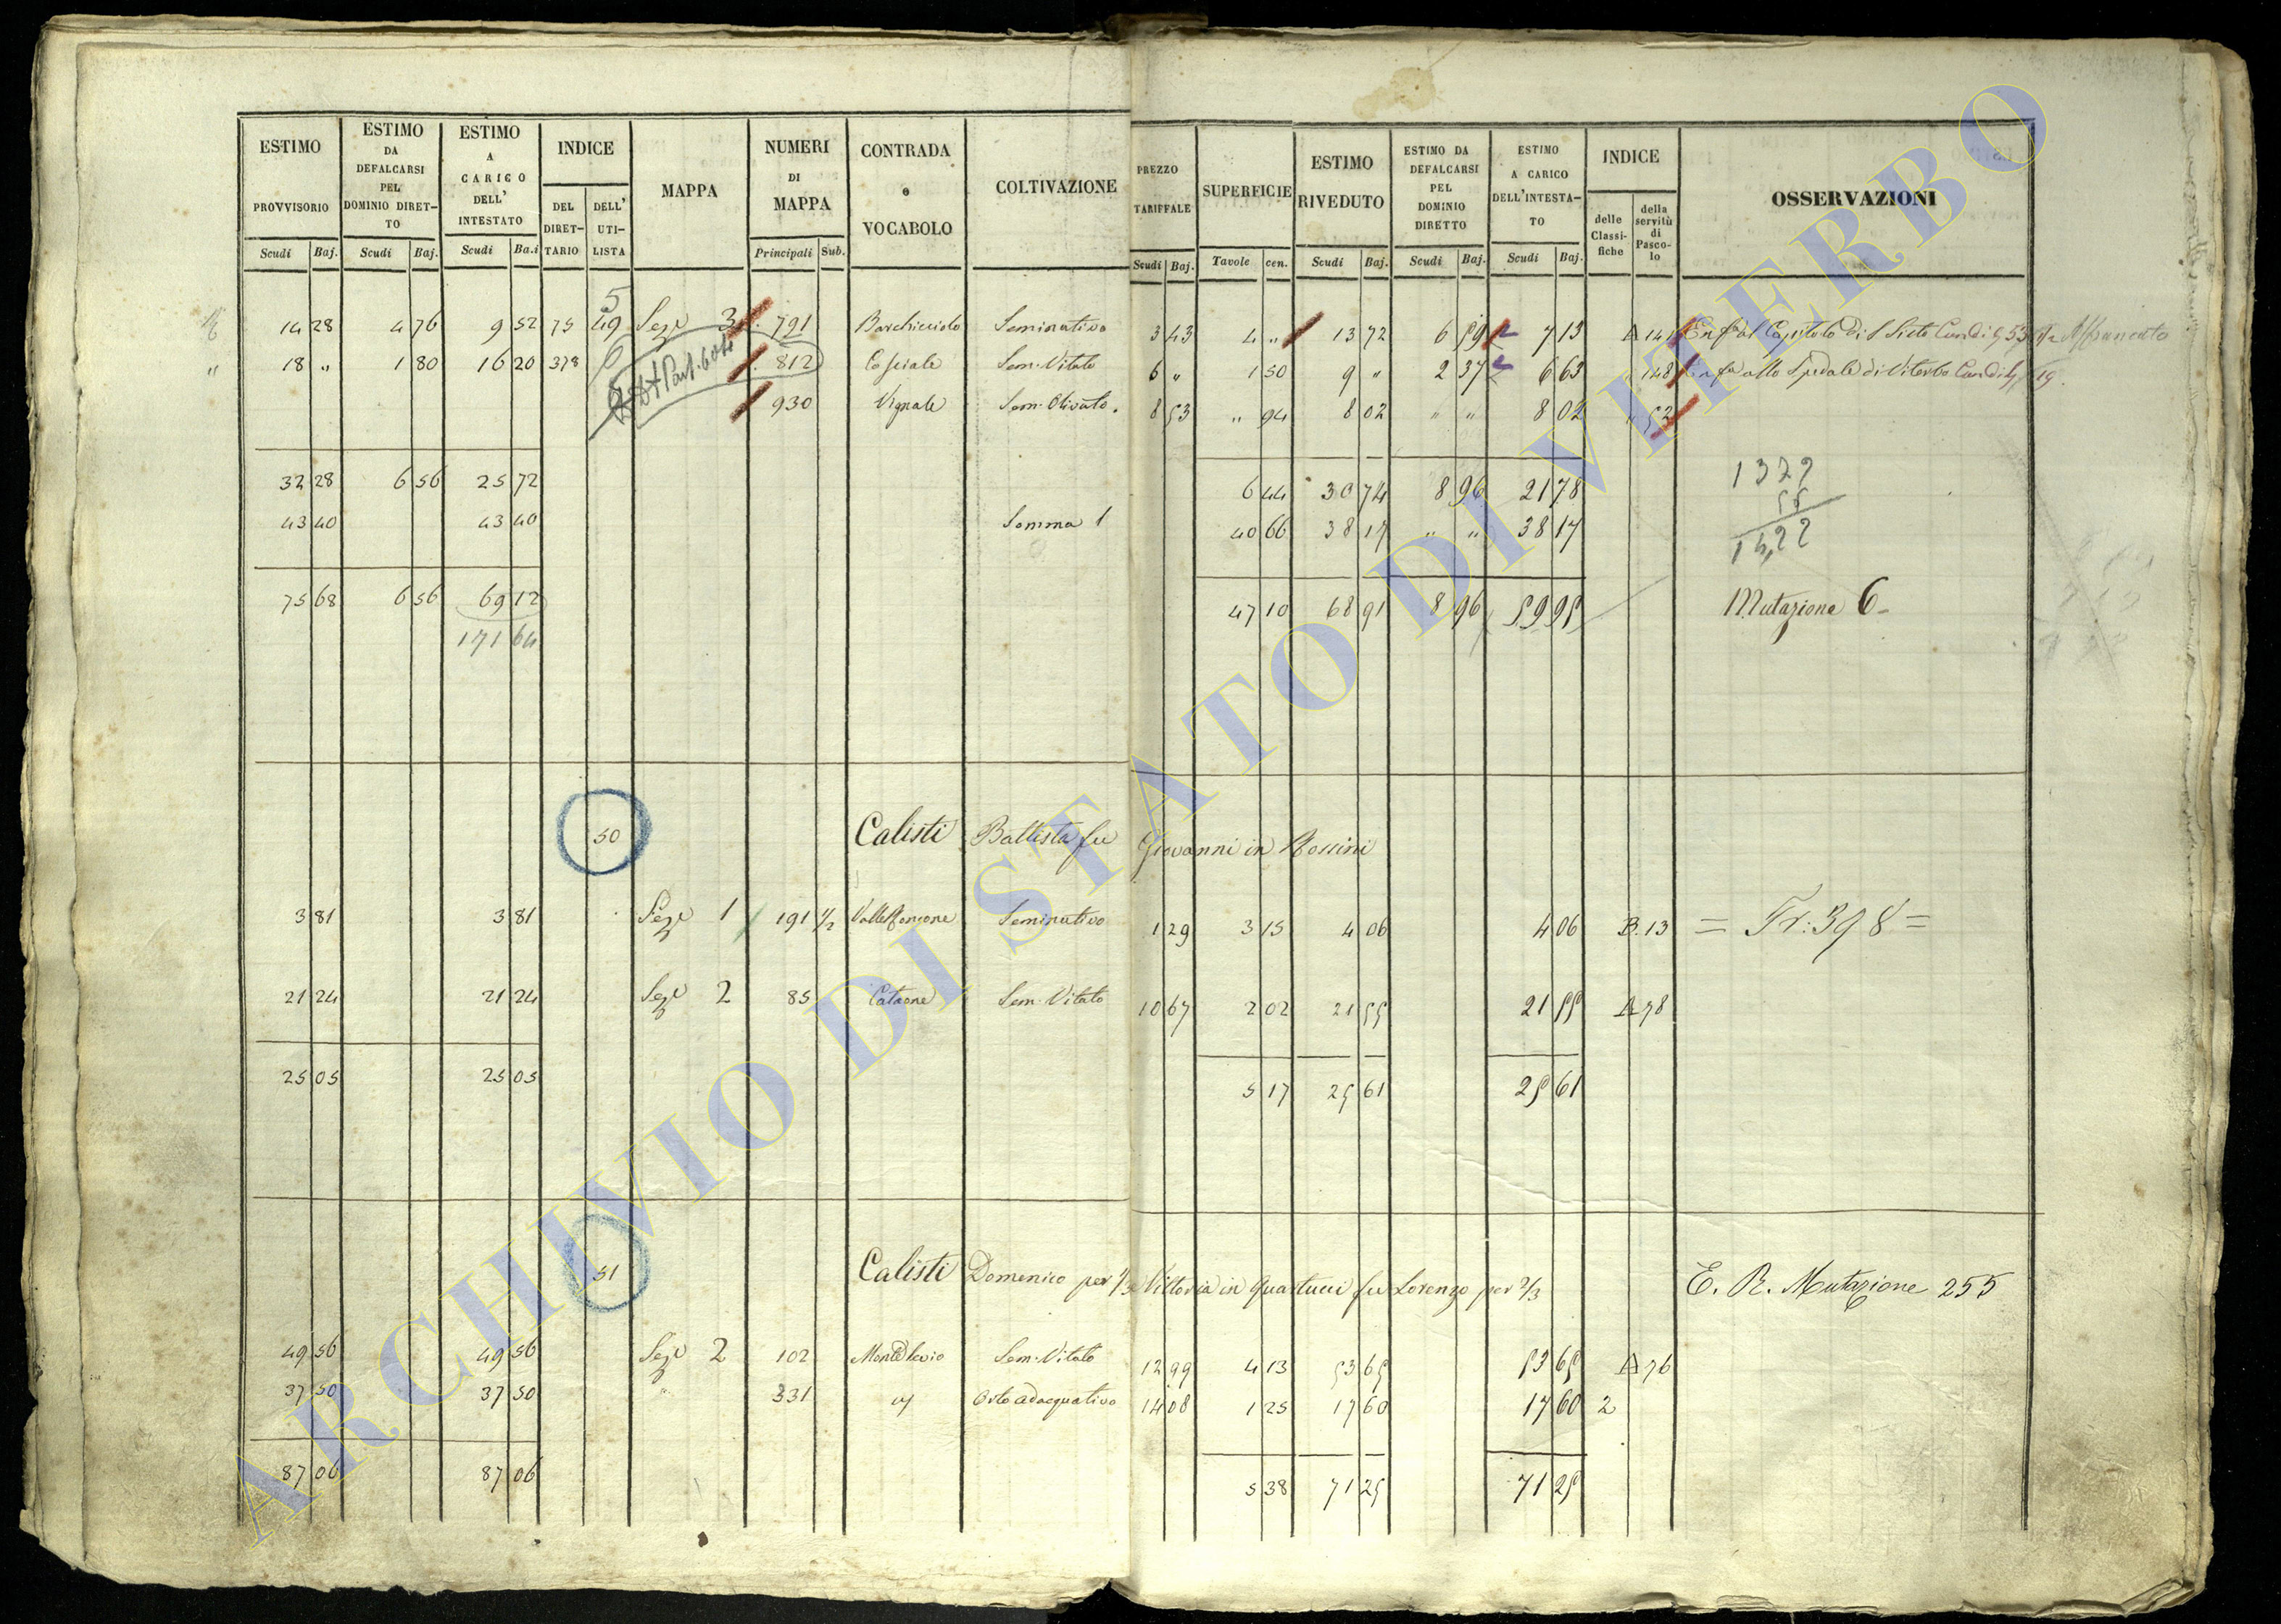 ESTIMO PROVVISORIO Scudi Baj.
ESTIMO DA DEFALCARSI PEL DOMINIO DIRETTO Scudi Baj.
ESTIMO A CARICO DELL' INTESTATO Scudi Ba.i
INDICE DEL DIRETTARIO DELL' UTILISTA
MAPPA
NUMERI DI MAPPA Principali Sub.
CONTRADA o VOCABOLO
COLTIVAZIONE
PREZZO TARIFFALE Scudi Baj.
SUPERFICIE Tavole cen.
ESTIMO RIVEDUTO Scudi Baj.
ESTIMO DA DEFALCARSI PEL DOMINIO DIRETTO Scudi Baj.
ESTIMO A CARICO DELL'INTESTATO Scudi Baj.
INDICE delle Classifiche della servitù di Pascolo
OSSERVAZIONI
5
14 28 4 76 9 52 75 49 Seze 3 791 Seminativo 3 43 4 " 13 72 6 59 7 13 A 141 Enfa al Capitolo di S Sisto Affrancato
" 18 " 1 80 16 20 378 812 Cosciale Sem. Vitato 6 " 1 50 9 " 2 37 6 63 " 148 Enfa allo Spedale di Viterbo
930 Vignale Sem. Olivato. 8 53 " 94 8 02 " " 8 02 " 52
32 28 6 56 25 72 6 44 30 74 8 96 21 78
43 40 43 40 Somma 1 40 66 38 17 " " 38 17
75 68 6 56 69 12 47 10 68 91 8 96 59 95 Mutazione 6
171 64
50 Calisti Battista fu Giovanni in Rossini
3 81 3 81 Seze 1 191 1/2 Seminativo 1 29 3 15 4 06 4 06 B. 13 = Tr: 398 =
21 24 21 24 Seze 2 85 Cataone Sem. Vitato 10 67 2 02 21 55 21 55 A 78
25 05 25 05 5 17 25 61 25 61
51 Calisti Domenico per 1/3 Vittoria in Quartucci fu Lorenzo per 2/3 E. R. Mutazione 255
49 56 49 56 Seze 2 102 Sem. Vitato 12 99 4 13 53 65 53 65 A 76
37 50 37 50 " 331 Orto adacquativo 14 08 1 25 17 60 17 60 2
87 06 87 06 5 38 71 25 71 25
ARCHIVIO DI STATO DI VITERBO